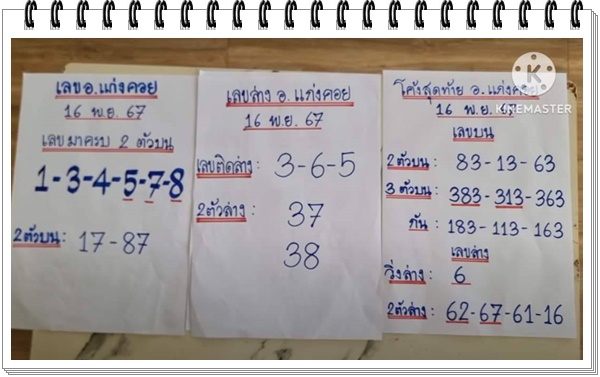 เลข อ.แก่งคอย
16 พ.ย. 67
เลขมาครบ 2 ตัวบน
1-3-4-5-7-8
2ตัวบน: 17-87
เลขล่าง อ. แก่งคอย
16 พ.ย. 67
เลขติดล่าง: 3-6-5
2ตัวล่าง: 37
38
โค้งสุดท้าย อ.แก่งคอย
16 พ.ย. 67
เลขบน
2ตัวบน: 83-13-63
3 ตัวบน: 383-313-363
กัน: 183-113-163
เลขล่าง
วิ่งล่าง: 6
2ตัวล่าง: 62-67-61-16
KINEMASTER